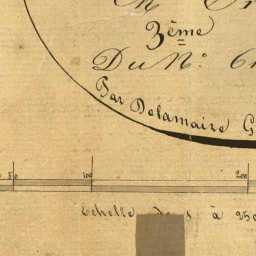 3ème
Du N°. 61
Par Delamaire G
50 100 200
Echelle de 1 à 250